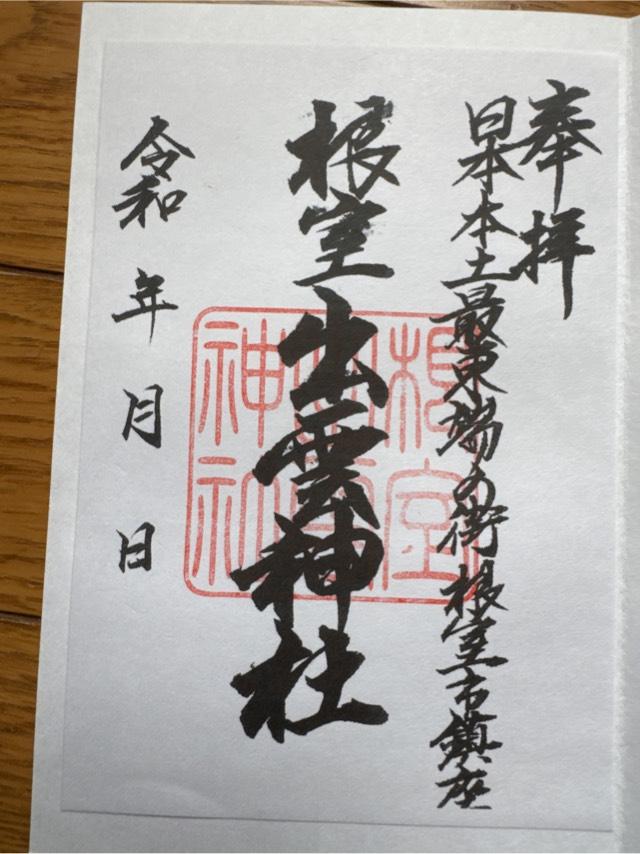 奉拝
日本本土最東端の街 根室市鎮座
根室出雲神社
根室
出雲
神社
令和 年 月 日